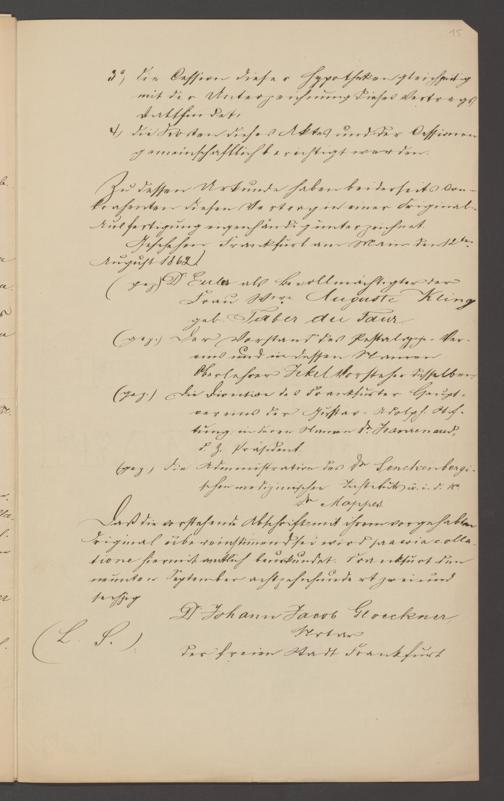 15
3°, die Cession dieser Hypotheken gleichzeitig
mit der Unterzeichnung dieses Vertrags
stattfindet;
4, die Kosten dieses Aktes und der Cessionen
gemeinschaftlich berichtigt werden.
Zu dessen Urkunde haben beiderseits Con-
trahenten diesen Vertrag in einer Original-
Ausfertigung eigenhändig unterzeichnet.
Geschehen Frankfurt am Main den 12ten
August 1862.
(gez.) Dr Euler als Bevollmächtigter der
Frau Wwe Auguste Kling
geb. Faber du Faur
(gez.) Der Vorstand des Pestalozzi-Ver-
eins und in dessen Namen
Oberlehrer Jekel Vorsteher desselben
(gez.) Die Direction des Frankfurter Haupt-
vereins der Gustav-Adolph Stif-
tung in deren Namen Dr. Jeanrenaud,
d. Z. Präsident
(gez.) die Administration des Dr Senckenbergi-
schen medizinischen Instituts u. i. d. N.
Dr Mappes
Daß die vorstehende Abschrift mit ihrem vorgehabten
Original übereinstimmend sei wird
hiermit amtlich beurkundet. Frankfurt den
neunten September achtzehnhundert zwei und
sechzig
Dr Johann Jacob Gloeckner
Notar
(L. S.) der freien Stadt Frankfurt